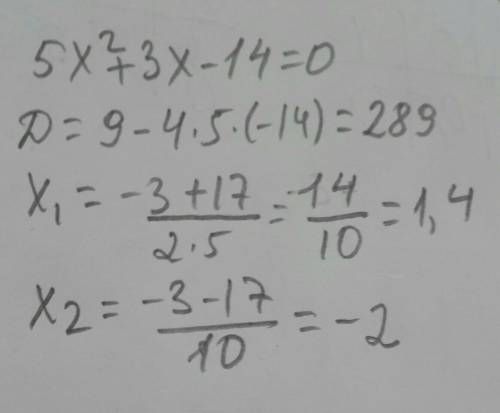 5x²+3x-14=0
D=9-4·5·(-14)=289
x₁=(-3+17)/(2·5)=14/10=1,4
x₂=(-3-17)/10=-2